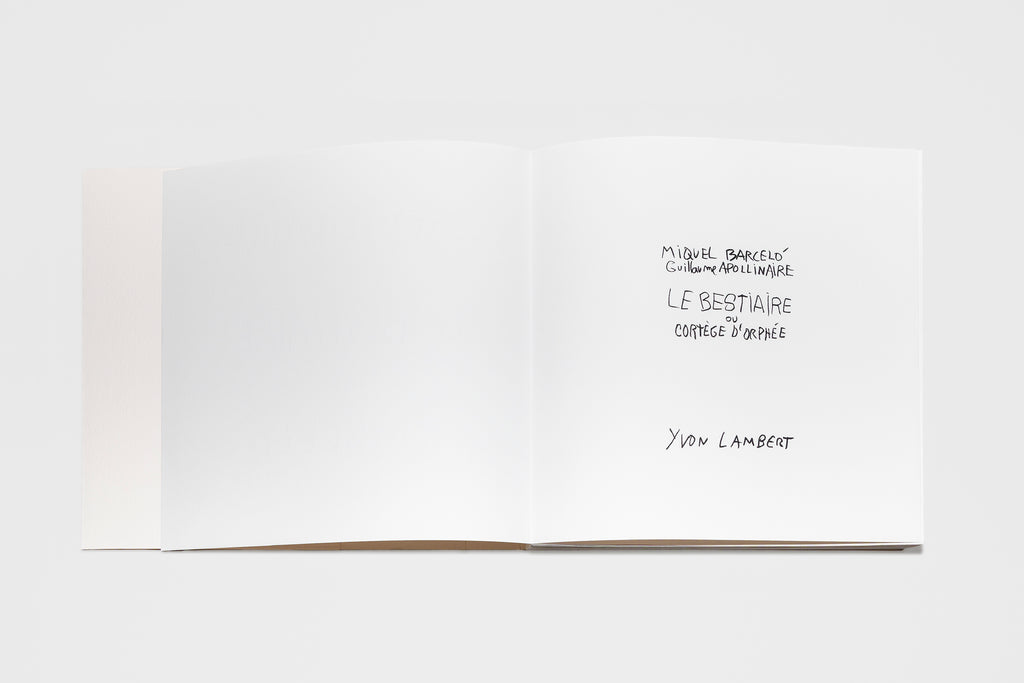 MIQUEL BARCELÓ
Guillaume APOLLINAIRE
LE BESTIAIRE
OU
CORTÈGE D'ORPHÉE
YVON LAMBERT